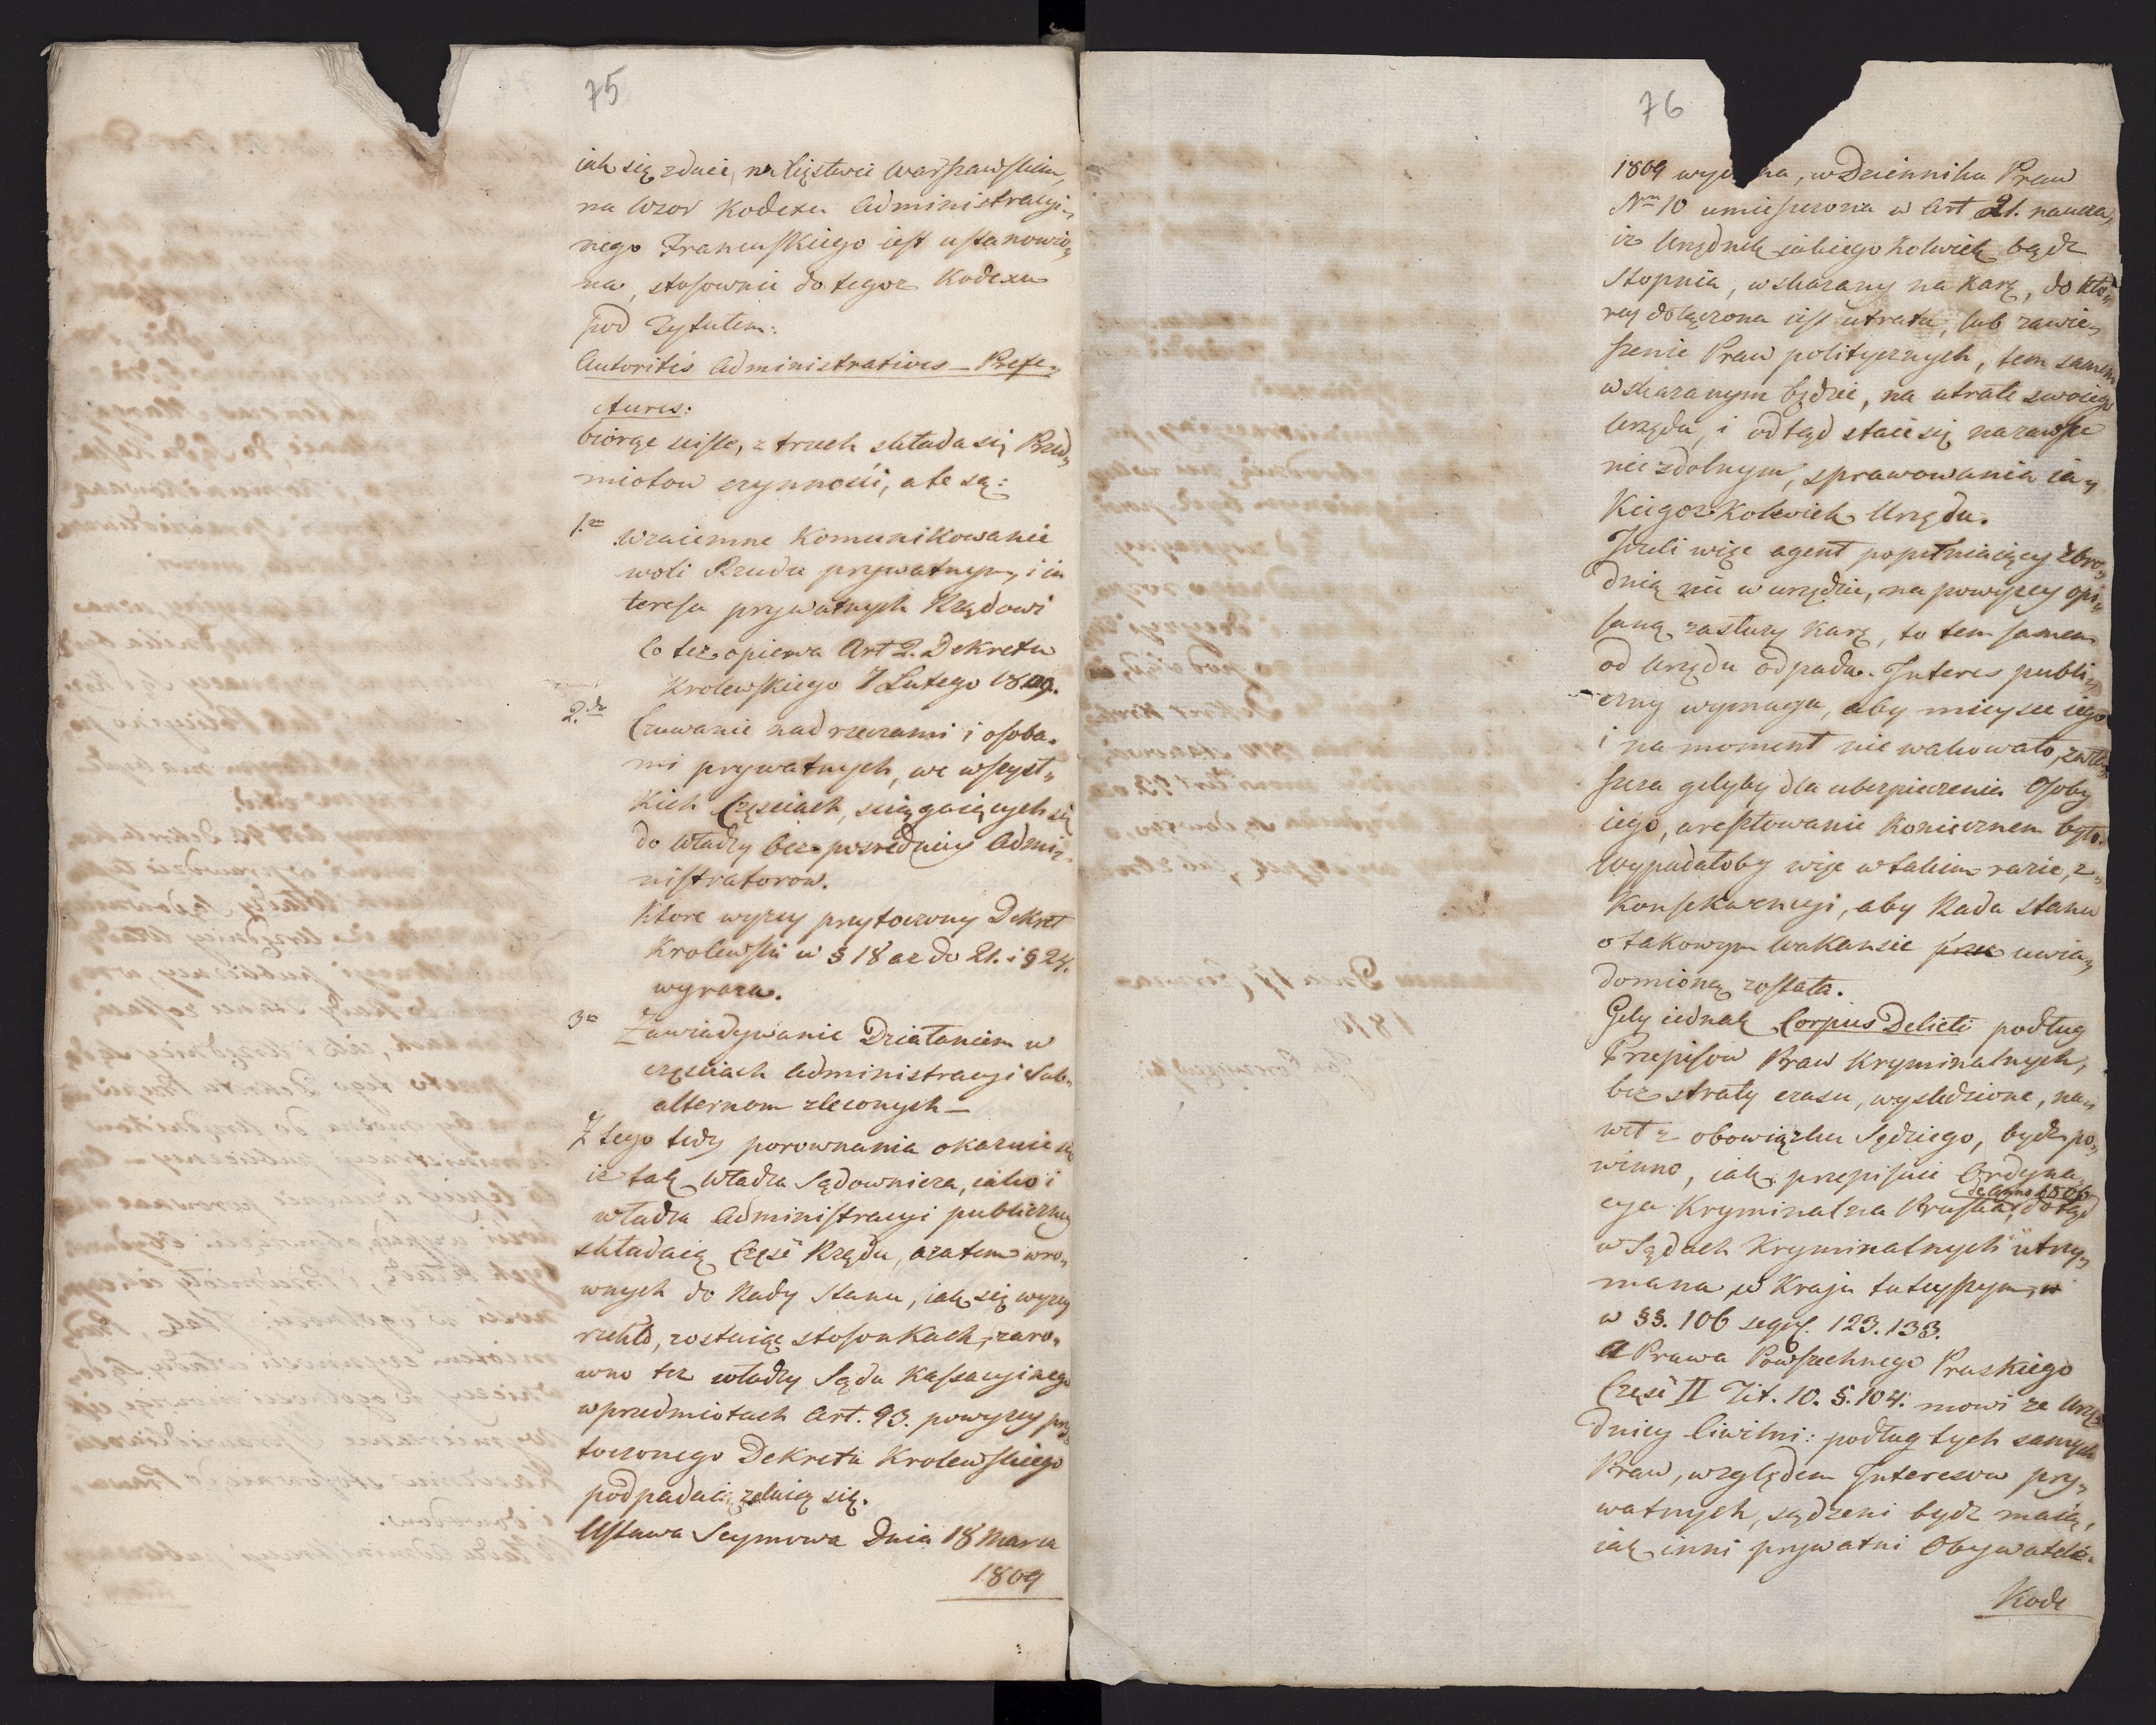 75
iak się zdaie, w Xięstwie Warszawskim,
na wzor Kodexu Administracyi„
nego Francuskiego iest ustanowio„
na, stosownie do tegoz Kodexu
pod Tytułem:
Autorités Administratives – Prefe„
ctures:
biorąc scisle, z trzech składa się Przed„
miotow czynności, a te są:
1.o wzaiemne Komunikowanie
woli Rządu prywatnym, i in
teresu prywatnych Rządowi
Co tez opiewa Art 2. Dekretu
Krolewskiego 7 Lutego 1809.
2.do Czuwanie nad rzeczami i osoba„
mi prywatnych, we wszyst„
kich Częsciach, sciągaiących się
do Władzy bez posredniey Admi„
nistratorow.
Ktore wyzey przytoczony Dekret
Krolewski w § 18 az do 21. i § 24.
wyraza.
3o Zawiadywanie Działaniem w
częsciach Administracyi Sub„
alternom zleconych –
Z tego tedy porownania okazuie się
iz tak Władza Sądownicza, iako i
władza Administracyi publiczney
składaią Część Rządu, a zatem w ro„
wnych do Rady Stanu, iak się wyzey
rzekło, zostaiąc stosonkach, zaro„
wno tez władzy Sądu Kassacyinego
w przedmiotach Art. 93. powyzey przy„
toczonego Dekretu Krolewskiego
podpadać zdaią się.
Ustawa Seymowa Dnia 18 Marca
1809
76
1809 wydana, w Dzienniku Praw
Nro 10 umieszczona w Art 21. naucza,
iz Urzędnik iakiego kolwiek bądz
Stopnia, wskazany na karę, do kto„
rey dołączona iest utrata, lub zawie„
szenie Praw politycznych, tem samem
wskazanym będzie, na utratę swoiego
Urzędu, i odtąd staie się nazawsze
niezdolnym, sprawowania ia„
kiegoz kolwiek Urzędu.
Jezeli więc agent popełniaiący zbro„
dnią nie w urzędzie, na powyzey opi„
saną zasłuzy karę, to tem samem
od Urzędu odpada. Interes publi„
czny wymaga, aby mieysce iego
i na moment nie wakowało, zwła„
szcza gdyby dla ubezpieczenia Osoby
iego, aresztowanie koniecznem było.
Wypadałoby więc w takim razie, z„
konsekwencyi, aby Rada Stanu
o takowym wakansie przez uwia„
domioną została.
Gdy iednak Corpus Delicti podług
Przepisow Praw Kryminalnych,
bez straty czasu, wysledzione, na„
wet z obowiązku Sędziego, bydz po„
winno, iak przepisuie Ordyna„
cya Kryminalna Pruska de Anno 1806, dotąd
w Sądach Kryminalnych utrzy„
mana w Kraju tuteyszym, w
w §§. 106 seqq. 123. 133.
a Prawa Powszechnego Pruskiego
Część II Tit. 10. §. 104. mowi ze Urzę
dnicy Ciwilni: podług tych samych
Praw, względem Interesow pry„
watnych, sądzeni bydz maią,
iak inni prywatni Obywatele.
Kode